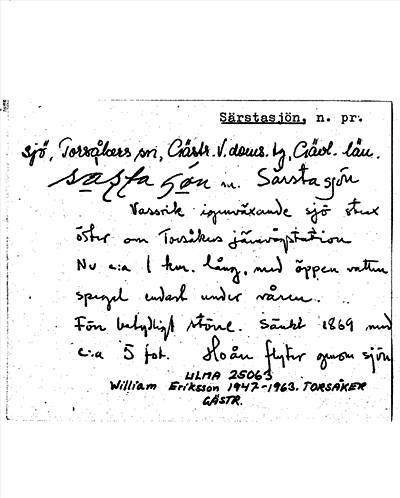 Särstasjön, n. pr.
sjö, Torsåkers sn, Gästr. V. doms. hg, Gävl. län.
sa̲sta so̲n n. Särsta sjön
Vassrik igenväxande sjö strax
öster om Torsåkers järnvägstation
Nu c:a 1 km. lång, med öppen vatten
spegel endast under våren.
Förr betydligt större. Sänkt 1869 med
c:a 5 fot. Hoån flyter genom sjön
ULMA 25063
William Eriksson 1947-1963. TORSÅKER
GÄSTR.